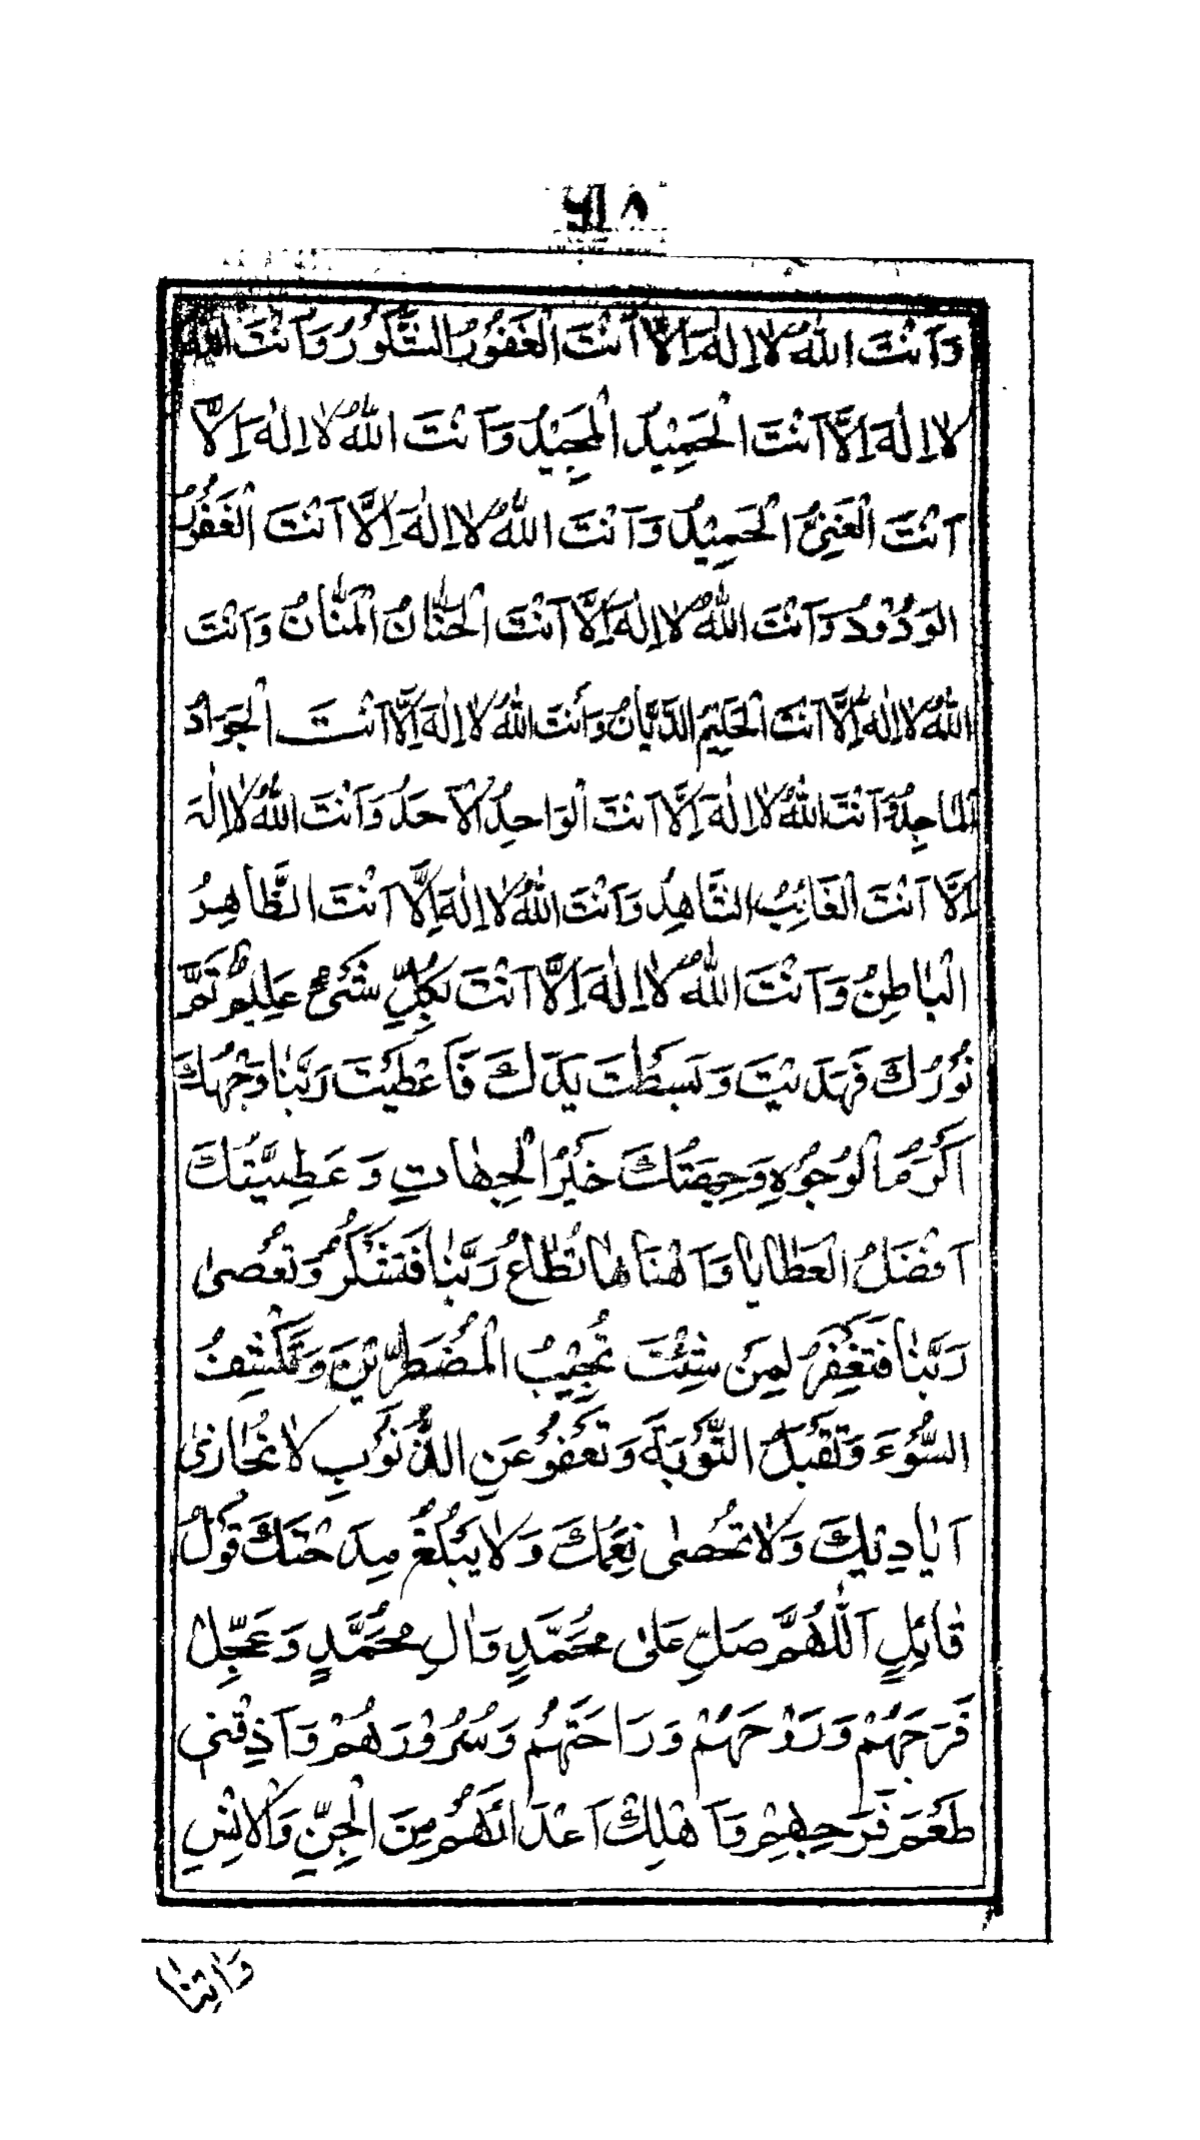 ۶۱۸
وَاَنْتَ اللّٰهُ لَا اِلٰهَ اِلَّا اَنْتَ الْغَفُوْرُ الشَّكُوْرُ وَاَنْتَ اللّٰهُ
لَا اِلٰهَ اِلَّا اَنْتَ الْحَمِيْدُ الْمَجِيْدُ وَاَنْتَ اللّٰهُ لَا اِلٰهَ اِلَّا
اَنْتَ الْغَنِيُّ الْحَمِيْدُ وَاَنْتَ اللّٰهُ لَا اِلٰهَ اِلَّا اَنْتَ الْغَفُوْرُ
الْوَدُوْدُ وَاَنْتَ اللّٰهُ لَا اِلٰهَ اِلَّا اَنْتَ الْحَنَّانُ الْمَنَّانُ وَاَنْتَ
اللّٰهُ لَا اِلٰهَ اِلَّا اَنْتَ الْحَكِيْمُ الدَّيَّانُ وَاَنْتَ اللّٰهُ لَا اِلٰهَ اِلَّا اَنْتَ الْجَوَادُ
الْمَاجِدُ وَاَنْتَ اللّٰهُ لَا اِلٰهَ اِلَّا اَنْتَ الْوَاحِدُ الْاَحَدُ وَاَنْتَ اللّٰهُ لَا اِلٰهَ
اِلَّا اَنْتَ الْغَائِبُ الشَّاهِدُ وَاَنْتَ اللّٰهُ لَا اِلٰهَ اِلَّا اَنْتَ الظَّاهِرُ
الْبَاطِنُ وَاَنْتَ اللّٰهُ لَا اِلٰهَ اِلَّا اَنْتَ بِكُلِّ شَيْءٍ عَلِيْمٌ تَمَّ
نُوْرُكَ فَهَدَيْتَ وَبَسَطْتَ يَدَكَ فَاَعْطَيْتَ رَبَّنَا وَجْهُكَ
اَكْرَمُ الْوُجُوْهِ وَجِهَتُكَ خَيْرُ الْجِهَاتِ وَعَطِيَّتُكَ
اَفْضَلُ الْعَطَايَا وَاَهْنَاهَا تُطَاعُ رَبَّنَا فَتَشْكُرُ وَتُعْصٰى
رَبَّنَا فَتَغْفِرُ لِمَنْ شِئْتَ تُجِيْبُ الْمُضْطَرِّيْنَ وَتَكْشِفُ
السُّوْءَ وَتَقْبَلُ التَّوْبَةَ وَتَعْفُوْ عَنِ الذُّنُوْبِ لَا تُجَازٰى
اَيَادِيْكَ وَلَا تُحْصٰى نِعَمُكَ وَلَا يَبْلُغُ مِدْحَتَكَ قَوْلُ
قَائِلٍ اَللّٰهُمَّ صَلِّ عَلٰى مُحَمَّدٍ وَاٰلِ مُحَمَّدٍ وَعَجِّلْ
فَرَجَهُمْ وَرَوْحَهُمْ وَرَاحَتَهُمْ وَسُرُوْرَهُمْ وَاَذِقْنِيْ
طَعْمَ فَرَجِهِمْ وَاَهْلِكْ اَعْدَائَهُمْ مِنَ الْجِنِّ وَالْاِنْسِ
وَاٰتِنَا